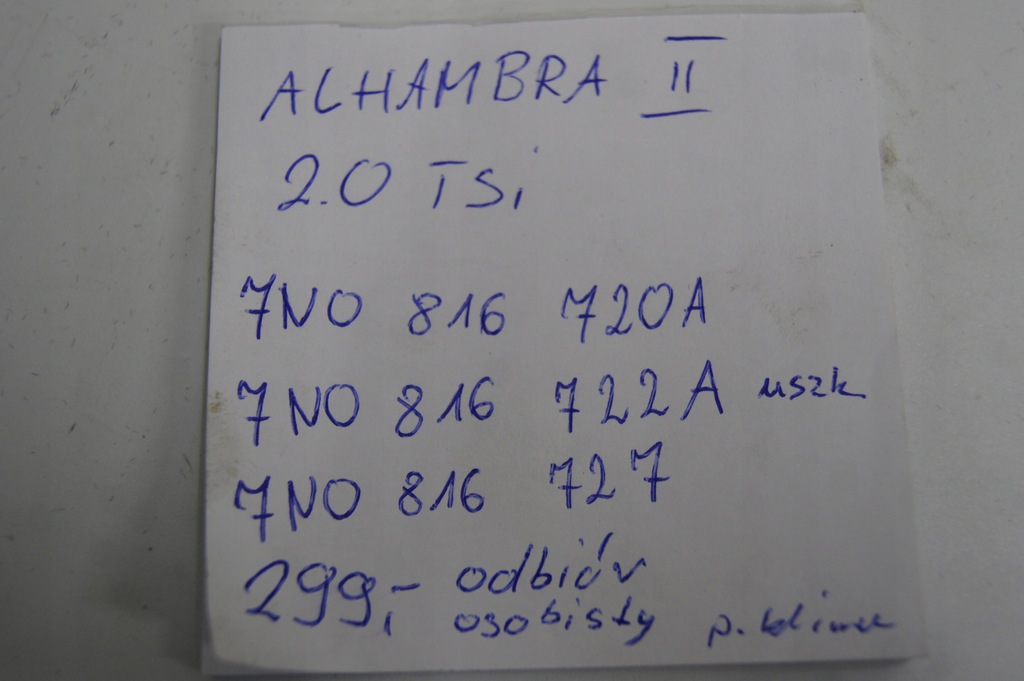 ALHAMBRA II
2.0 TSi
7NO 816 720A
7NO 816 722A uszk
7NO 816 727
299,- odbiór
osobisty p.